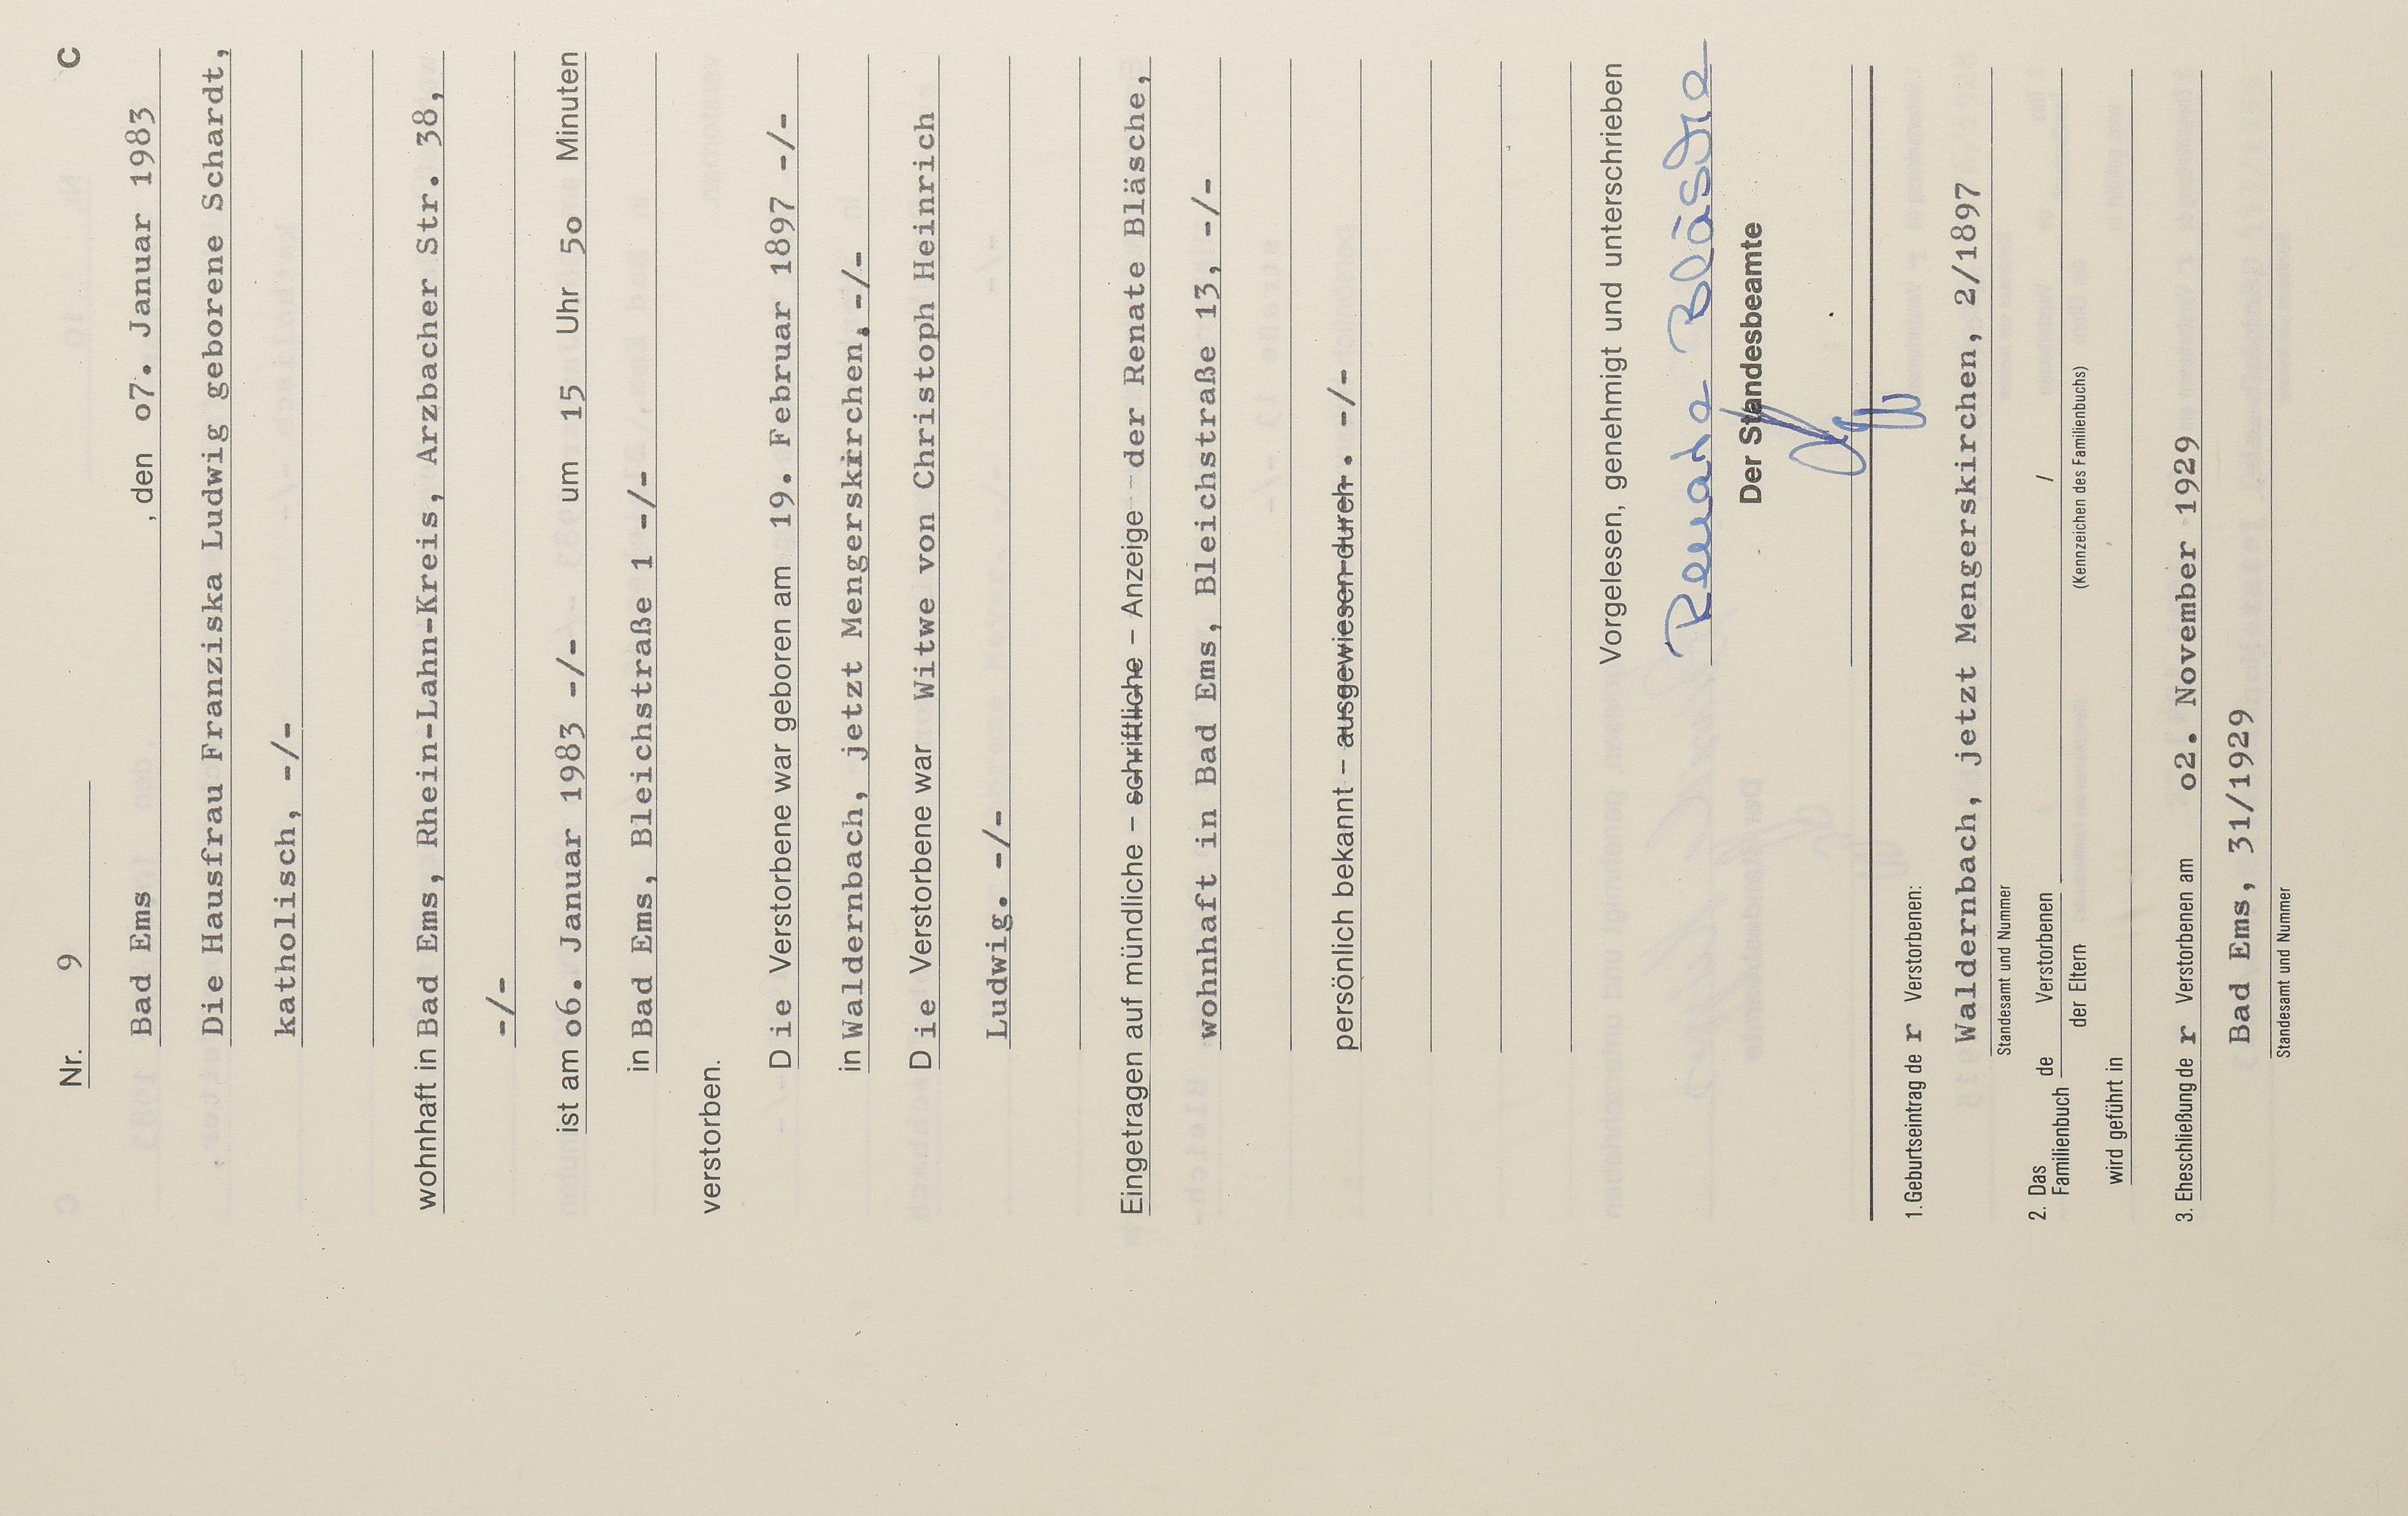 Nr. 9 C
Bad Ems , den o7. Januar 1983
Die Hausfrau Franziska Ludwig geborene Schardt,
katholisch, -/-
wohnhaft in Bad Ems, Rhein-Lahn-Kreis, Arzbacher Str. 38,
-/-
ist am o6. Januar 1983 -/- um 15 Uhr 5o Minuten
in Bad Ems, Bleichstraße 1 -/-
verstorben.
Die Verstorbene war geboren am 19. Februar 1897 -/-
in Waldernbach, jetzt Mengerskirchen, -/-
Die Verstorbene war Witwe von Christoph Heinrich
Ludwig. -/-
Eingetragen auf mündliche – schriftliche – Anzeige der Renate Bläsche,
wohnhaft in Bad Ems, Bleichstraße 13, -/-
persönlich bekannt – ausgewiesen durch . -/-
Vorgelesen, genehmigt und unterschrieben
Renate Bläsche
Der Standesbeamte
1. Geburtseintrag de r Verstorbenen:
Waldernbach, jetzt Mengerskirchen, 2/1897
Standesamt und Nummer
2. Das Familienbuch de Verstorbenen /
der Eltern (Kennzeichen des Familienbuchs)
wird geführt in
3. Eheschließung de r Verstorbenen am o2. November 1929
Bad Ems, 31/1929
Standesamt und Nummer